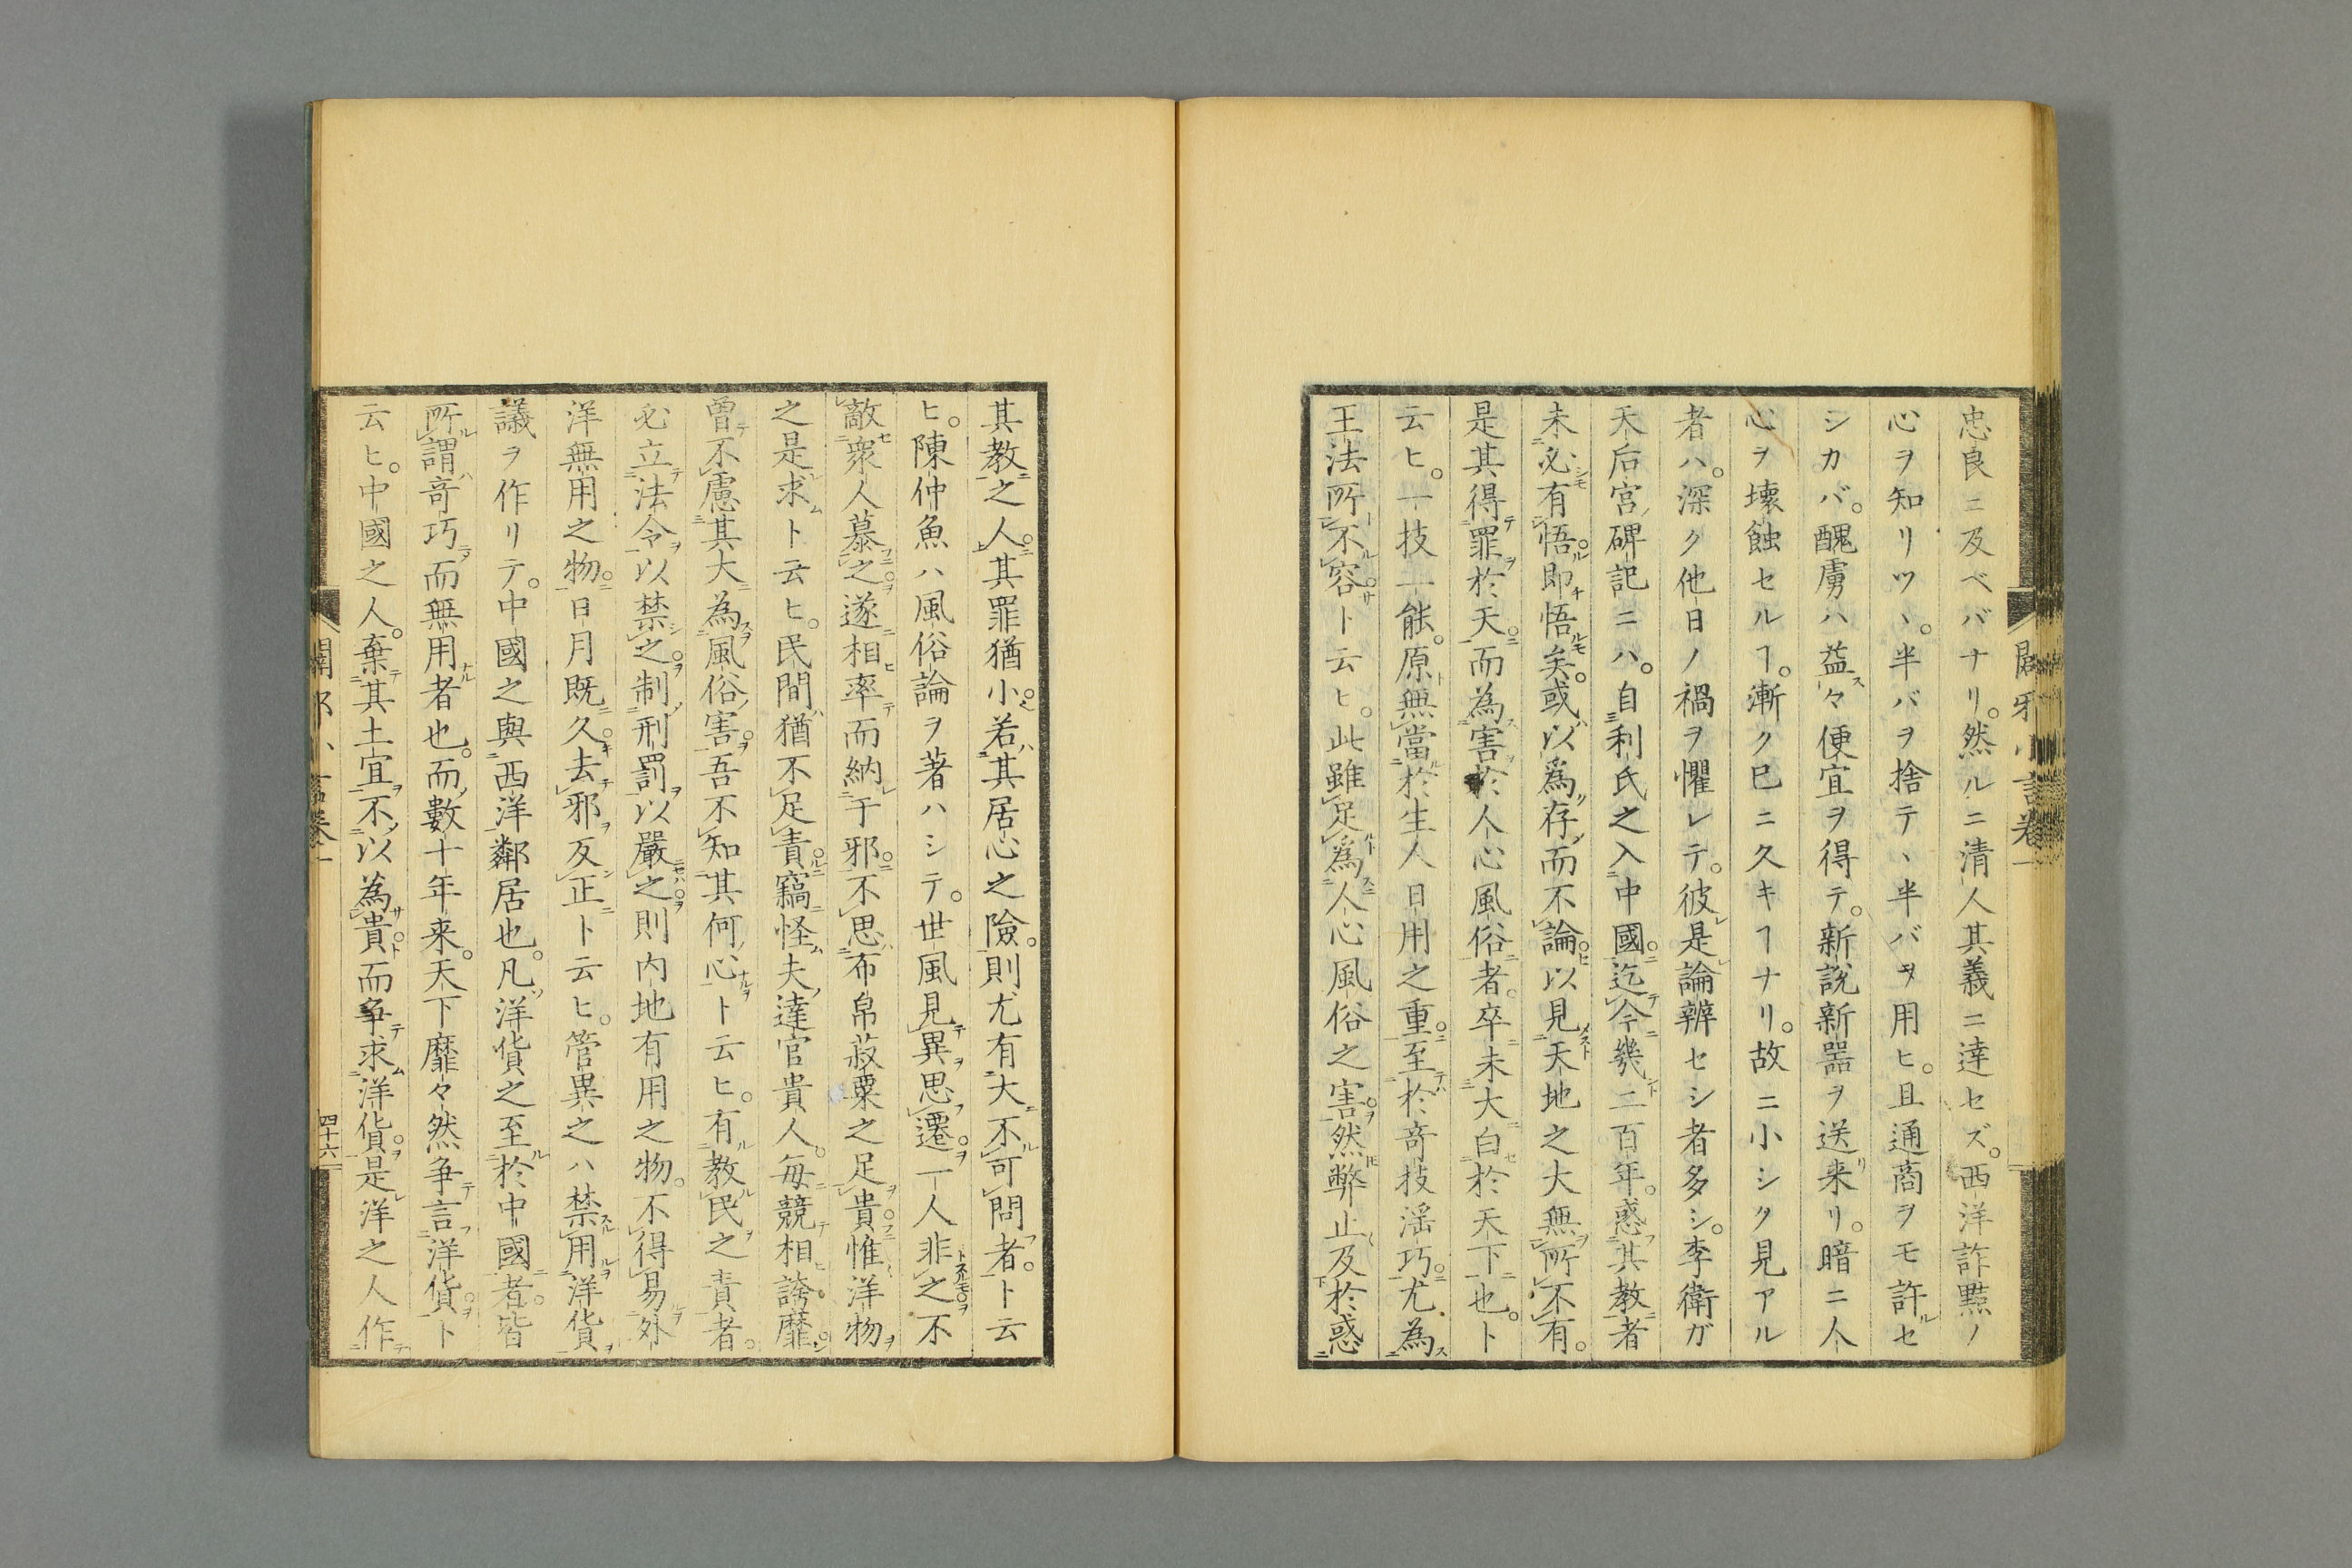 忠良ニ及ベバナリ。然ルニ清人其義ニ達セズ。西洋詐黠ノ
心ヲ知リツヽ。半バヲ捨テヽ半バヲ用ヒ。且通商ヲモ許ルセ
シカバ。醜虜ハ益ス々便宜ヲ得テ。新説新噐ヲ送リ来リ。暗ニ人
心ヲ壊蝕セルヿ。漸ク巳ニ久キヿナリ。故ニ小シク見アル
者ハ。深ク他日ノ禍ヲ懼レテ。彼レ是レ論辨セシ者多シ。李衛ガ
天后宮碑記ニハ。自利氏之入中國。迄今幾二百年。惑其教者
未必有悟。即悟矣。或以爲存而不論。以見天地之大無所不有。
是其得罪於天。而為害於人心風俗者。卒未大白於天下也。ト
云ヒ。一技一能。原無當於生人日用之重。至於竒技滛巧。尤為
王法所不容ト云ヒ。此雖足爲人心風俗之害。然弊止及於惑
其教之人。其罪猶小。若其居心之險。則尤有大不可問者。ト云
ヒ。陳仲魚ハ風俗論ヲ著ハシテ。世風見異思遷。一人非之不
敵衆人慕之。遂相率而納于邪。不思布帛菽粟之足貴。惟洋物
之是求ト云ヒ。民間猶不足責。竊怪夫達官貴人。毎競相誇靡。
曽不慮其大為風俗害。吾不知其何心ト云ヒ。有教民之責者。
必立法令以禁之。制刑罰以嚴之。則内地有用之物。不得易外
洋無用之物。日月既久。去邪反正ト云ヒ。管異之ハ禁用洋貨
議ヲ作リテ。中國之與西洋鄰居也。凡洋貨之至於中國者。皆
所謂竒巧而無用者也。而數十年来。天下靡々然爭言洋貨。ト
云ヒ。中國之人。棄其土宜不以為貴。而爭求洋貨。是洋之人作
闢邪小言卷一
四十六